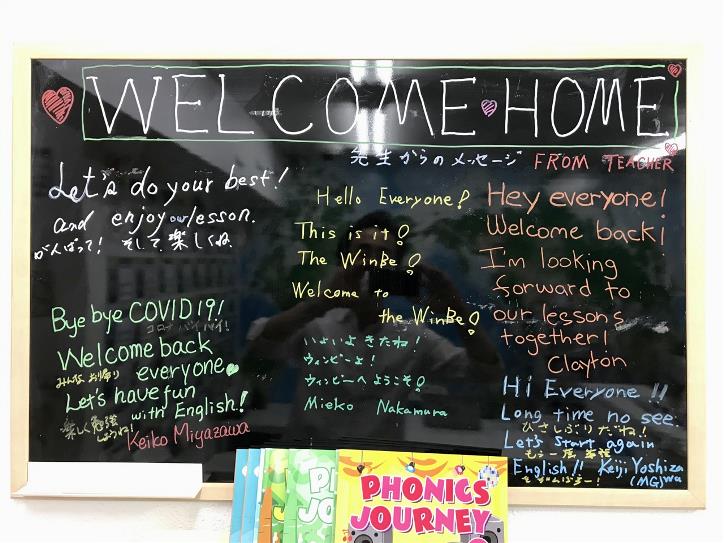 WELCOME HOME
先生からのメッセージ FROM TEACHER
Let's do your best!
and enjoy our lesson.
がんばって! そして楽しくね
Bye bye COVID19!
コロナバイバイ!
Welcome back
みんなお帰り everyone
Let's have fun
with English!
楽しく勉強
しようね!
Keiko Miyazawa
Hello Everyone!
This is it!
The WinBe!
Welcome to
the WinBe!
いよいよきたね!
ウィンビーよ!
ウィンビーへようこそ!
Mieko Nakamura
Hey everyone!
Welcome back!
I'm looking
forward to
our lessons
together!
Clayton
Hi Everyone!!
Long time no see.
ひさしぶりだね!
Let's start again
もう一度
English!! Keiji Yoshizawa
(MG)
PHONICS
JOURNEY